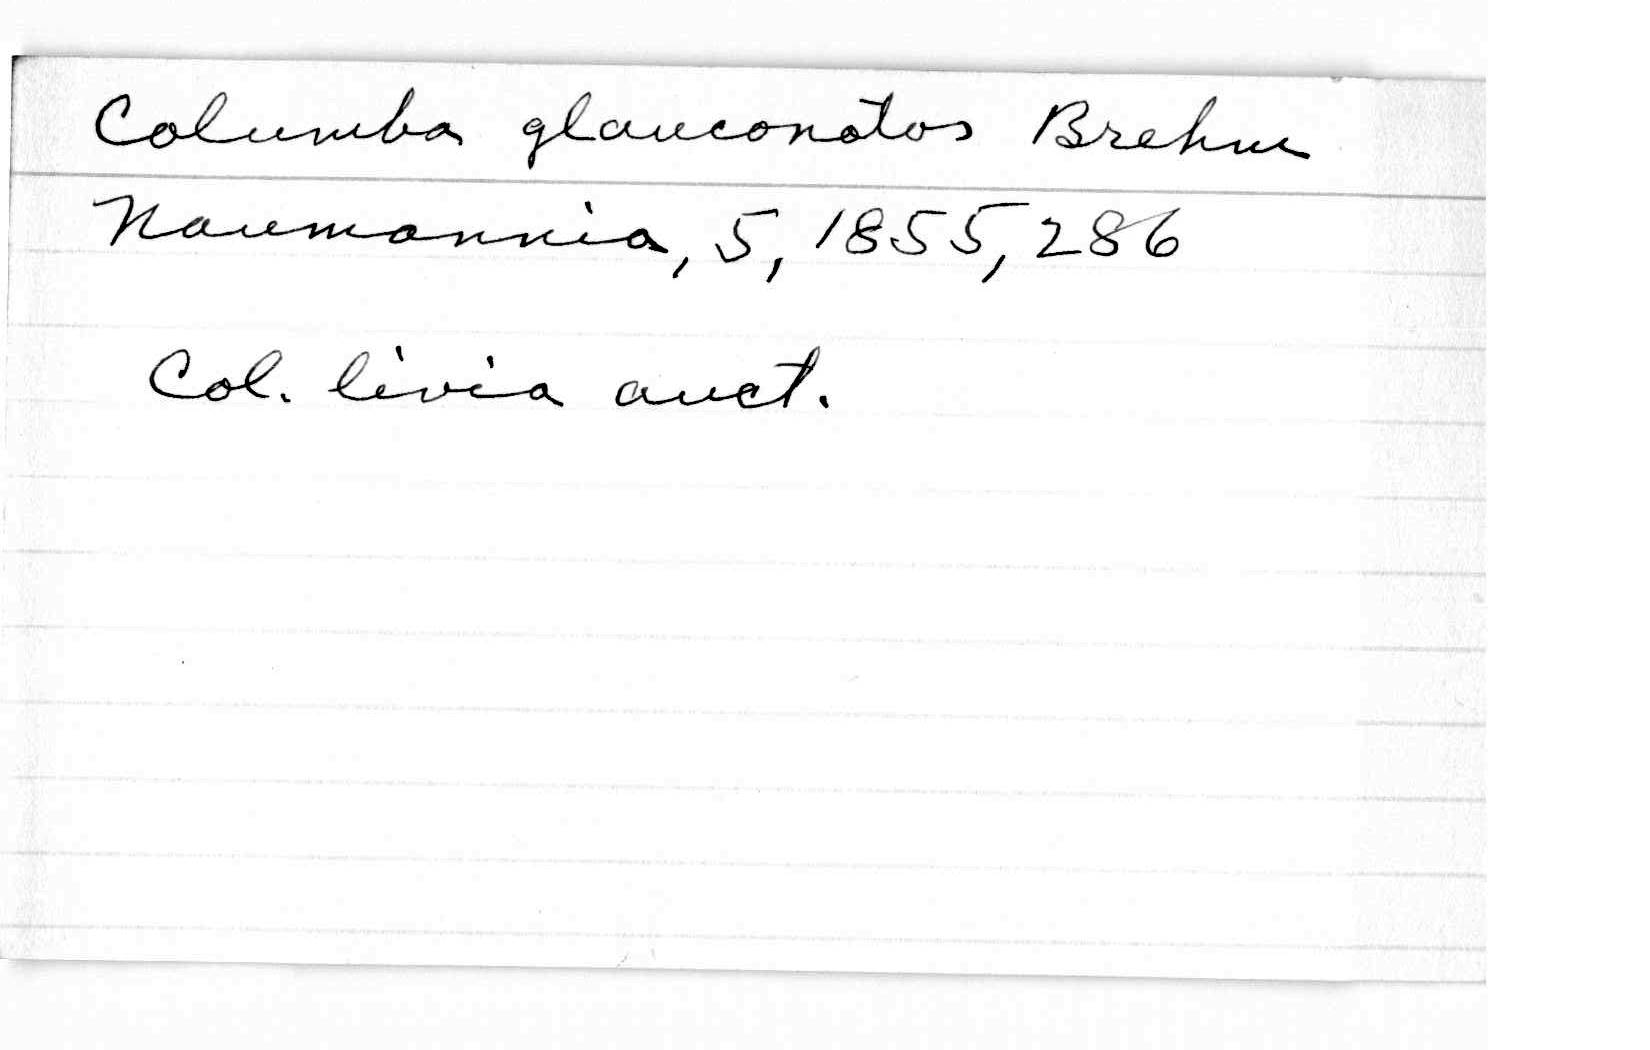 Columba glauconotos Brehm
Naumannia, 5, 1855, 286
Col. livia auct.